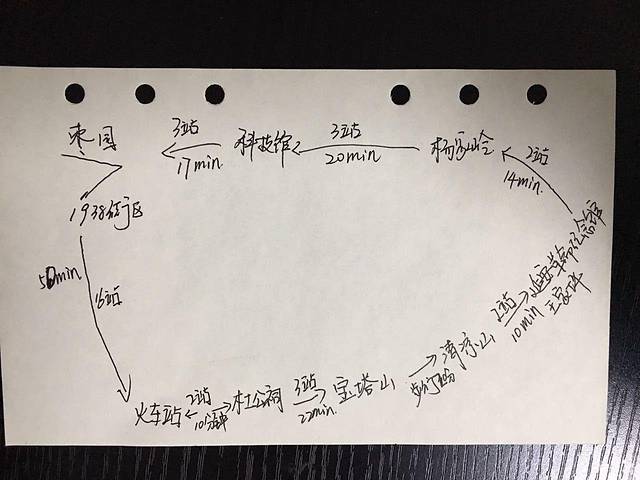 枣园
3站
17min
科技馆
3站
20min
杨家岭
2站
14min
1938街区
50min
16站
火车站
2站
10分钟
杜公祠
3站
22min
宝塔山
步行
清凉山
2站
10min
延安革命纪念馆
王家坪